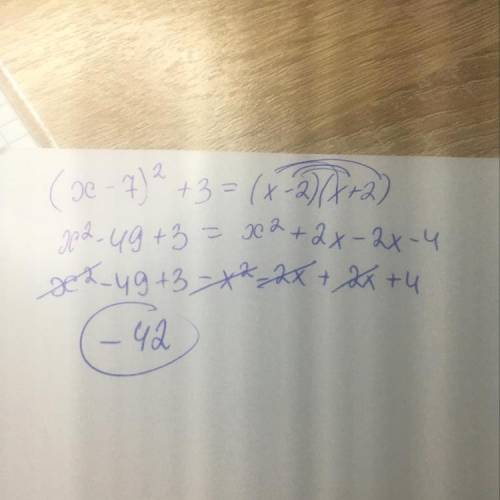 (x - 7)² + 3 = (x - 2)(x + 2)
x² - 49 + 3 = x² + 2x - 2x - 4
x² - 49 + 3 - x² - 2x + 2x + 4
- 42